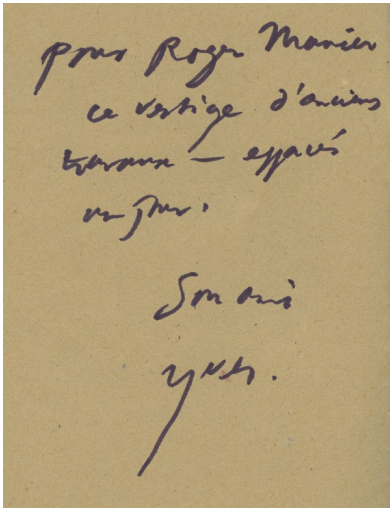 Pour Roger Munier
ce vestige d'anciens
travaux — effacés
un jour.
Son ami
Yves.